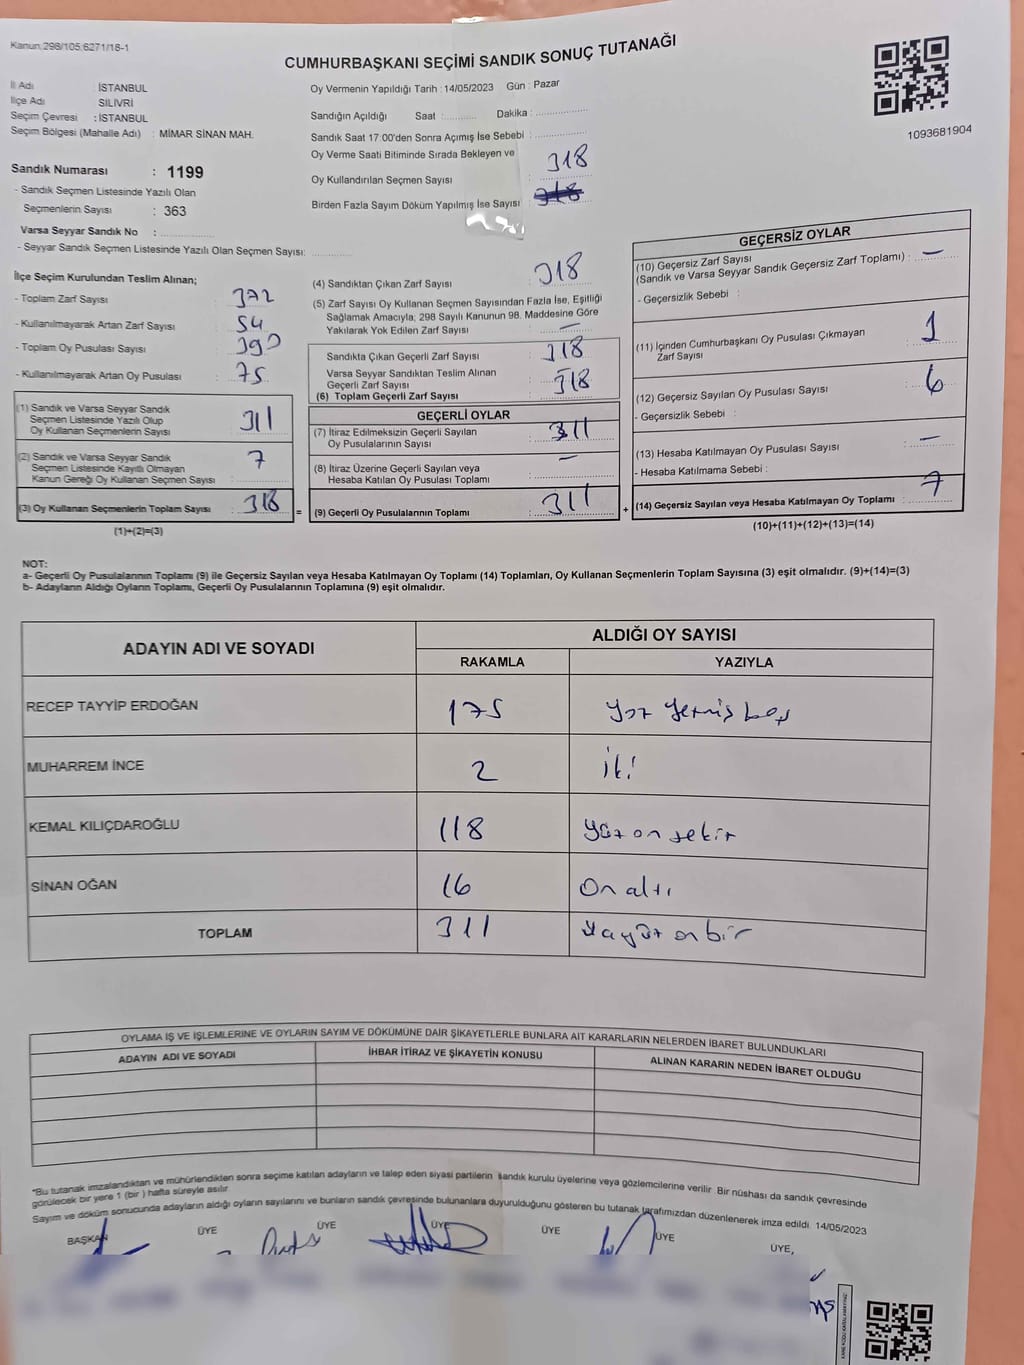 Kanun:298/105;6271/18-1
CUMHURBAŞKANI SEÇİMİ SANDIK SONUÇ TUTANAĞI
1093681904
İl Adı : İSTANBUL
İlçe Adı : SİLİVRİ
Seçim Çevresi : İSTANBUL
Seçim Bölgesi (Mahalle Adı) : MİMAR SİNAN MAH.
Sandık Numarası : 1199
- Sandık Seçmen Listesinde Yazılı Olan
Seçmenlerin Sayısı : 363
Varsa Seyyar Sandık No :
- Seyyar Sandık Seçmen Listesinde Yazılı Olan Seçmen Sayısı:
Oy Vermenin Yapıldığı Tarih : 14/05/2023 Gün : Pazar
Sandığın Açıldığı Saat : Dakika :
Sandık Saat 17.00'den Sonra Açımış İse Sebebi :
Oy Verme Saati Bitiminde Sırada Bekleyen ve
Oy Kullandırılan Seçmen Sayısı : 318
Birden Fazla Sayım Döküm Yapılmış İse Sayısı : 318
İlçe Seçim Kurulundan Teslim Alınan;
- Toplam Zarf Sayısı : 372
- Kullanılmayarak Artan Zarf Sayısı : 54
- Toplam Oy Pusulası Sayısı : 390
- Kullanılmayarak Artan Oy Pusulası : 75
(1) Sandık ve Varsa Seyyar Sandık
Seçmen Listesinde Yazılı Olup
Oy Kullanan Seçmenlerin Sayısı : 311
(2) Sandık ve Varsa Seyyar Sandık
Seçmen Listesinde Kayıtlı Olmayan
Kanun Gereği Oy Kullanan Seçmen Sayısı : 7
(3) Oy Kullanan Seçmenlerin Toplam Sayısı : 318
(1)+(2)=(3)
(4) Sandıktan Çıkan Zarf Sayısı : 318
(5) Zarf Sayısı Oy Kullanan Seçmen Sayısından Fazla İse, Eşitliği
Sağlamak Amacıyla; 298 Sayılı Kanunun 98. Maddesine Göre
Yakılarak Yok Edilen Zarf Sayısı : —
Sandıkta Çıkan Geçerli Zarf Sayısı : 318
Varsa Seyyar Sandıktan Teslim Alınan
Geçerli Zarf Sayısı : 318
(6) Toplam Geçerli Zarf Sayısı
GEÇERLİ OYLAR
(7) İtiraz Edilmeksizin Geçerli Sayılan
Oy Pusulalarının Sayısı : 311
(8) İtiraz Üzerine Geçerli Sayılan veya
Hesaba Katılan Oy Pusulası Toplamı : —
= (9) Geçerli Oy Pusulalarının Toplamı : 311
GEÇERSİZ OYLAR
(10) Geçersiz Zarf Sayısı
(Sandık ve Varsa Seyyar Sandık Geçersiz Zarf Toplamı) : —
- Geçersizlik Sebebi :
(11) İçinden Cumhurbaşkanı Oy Pusulası Çıkmayan
Zarf Sayısı : 1
(12) Geçersiz Sayılan Oy Pusulası Sayısı : 6
- Geçersizlik Sebebi :
(13) Hesaba Katılmayan Oy Pusulası Sayısı : —
- Hesaba Katılmama Sebebi :
+ (14) Geçersiz Sayılan veya Hesaba Katılmayan Oy Toplamı : 7
(10)+(11)+(12)+(13)=(14)
NOT:
a- Geçerli Oy Pusulalarının Toplamı (9) ile Geçersiz Sayılan veya Hesaba Katılmayan Oy Toplamı (14) Toplamları, Oy Kullanan Seçmenlerin Toplam Sayısına (3) eşit olmalıdır. (9)+(14)=(3)
b- Adayların Aldığı Oyların Toplamı, Geçerli Oy Pusulalarının Toplamına (9) eşit olmalıdır.
ADAYIN ADI VE SOYADI ALDIĞI OY SAYISI
RAKAMLA YAZIYLA
RECEP TAYYİP ERDOĞAN 175 Yüz yetmiş beş
MUHARREM İNCE 2 iki
KEMAL KILIÇDAROĞLU 118 yüz on sekiz
SİNAN OĞAN 16 On altı
TOPLAM 311 üçyüz onbir
OYLAMA İŞ VE İŞLEMLERİNE VE OYLARIN SAYIM VE DÖKÜMÜNE DAİR ŞİKAYETLERLE BUNLARA AİT KARARLARIN NELERDEN İBARET BULUNDUKLARI
ADAYIN ADI VE SOYADI İHBAR İTİRAZ VE ŞİKAYETİN KONUSU ALINAN KARARIN NEDEN İBARET OLDUĞU
"Bu tutanak imzalandıktan ve mühürlendikten sonra seçime katılan adayların ve talep eden siyasi partilerin sandık kurulu üyelerine veya gözlemcilerine verilir. Bir nüshası da sandık çevresinde
görülecek bir yere 1 (bir) hafta süreyle asılır.
Sayım ve döküm sonucunda adayların aldığı oyların sayılarını ve bunların sandık çevresinde bulunanlara duyurulduğunu gösteren bu tutanak tarafımızdan düzenlenerek imza edildi. 14/05/2023
BAŞKAN ÜYE ÜYE ÜYE ÜYE ÜYE ÜYE,